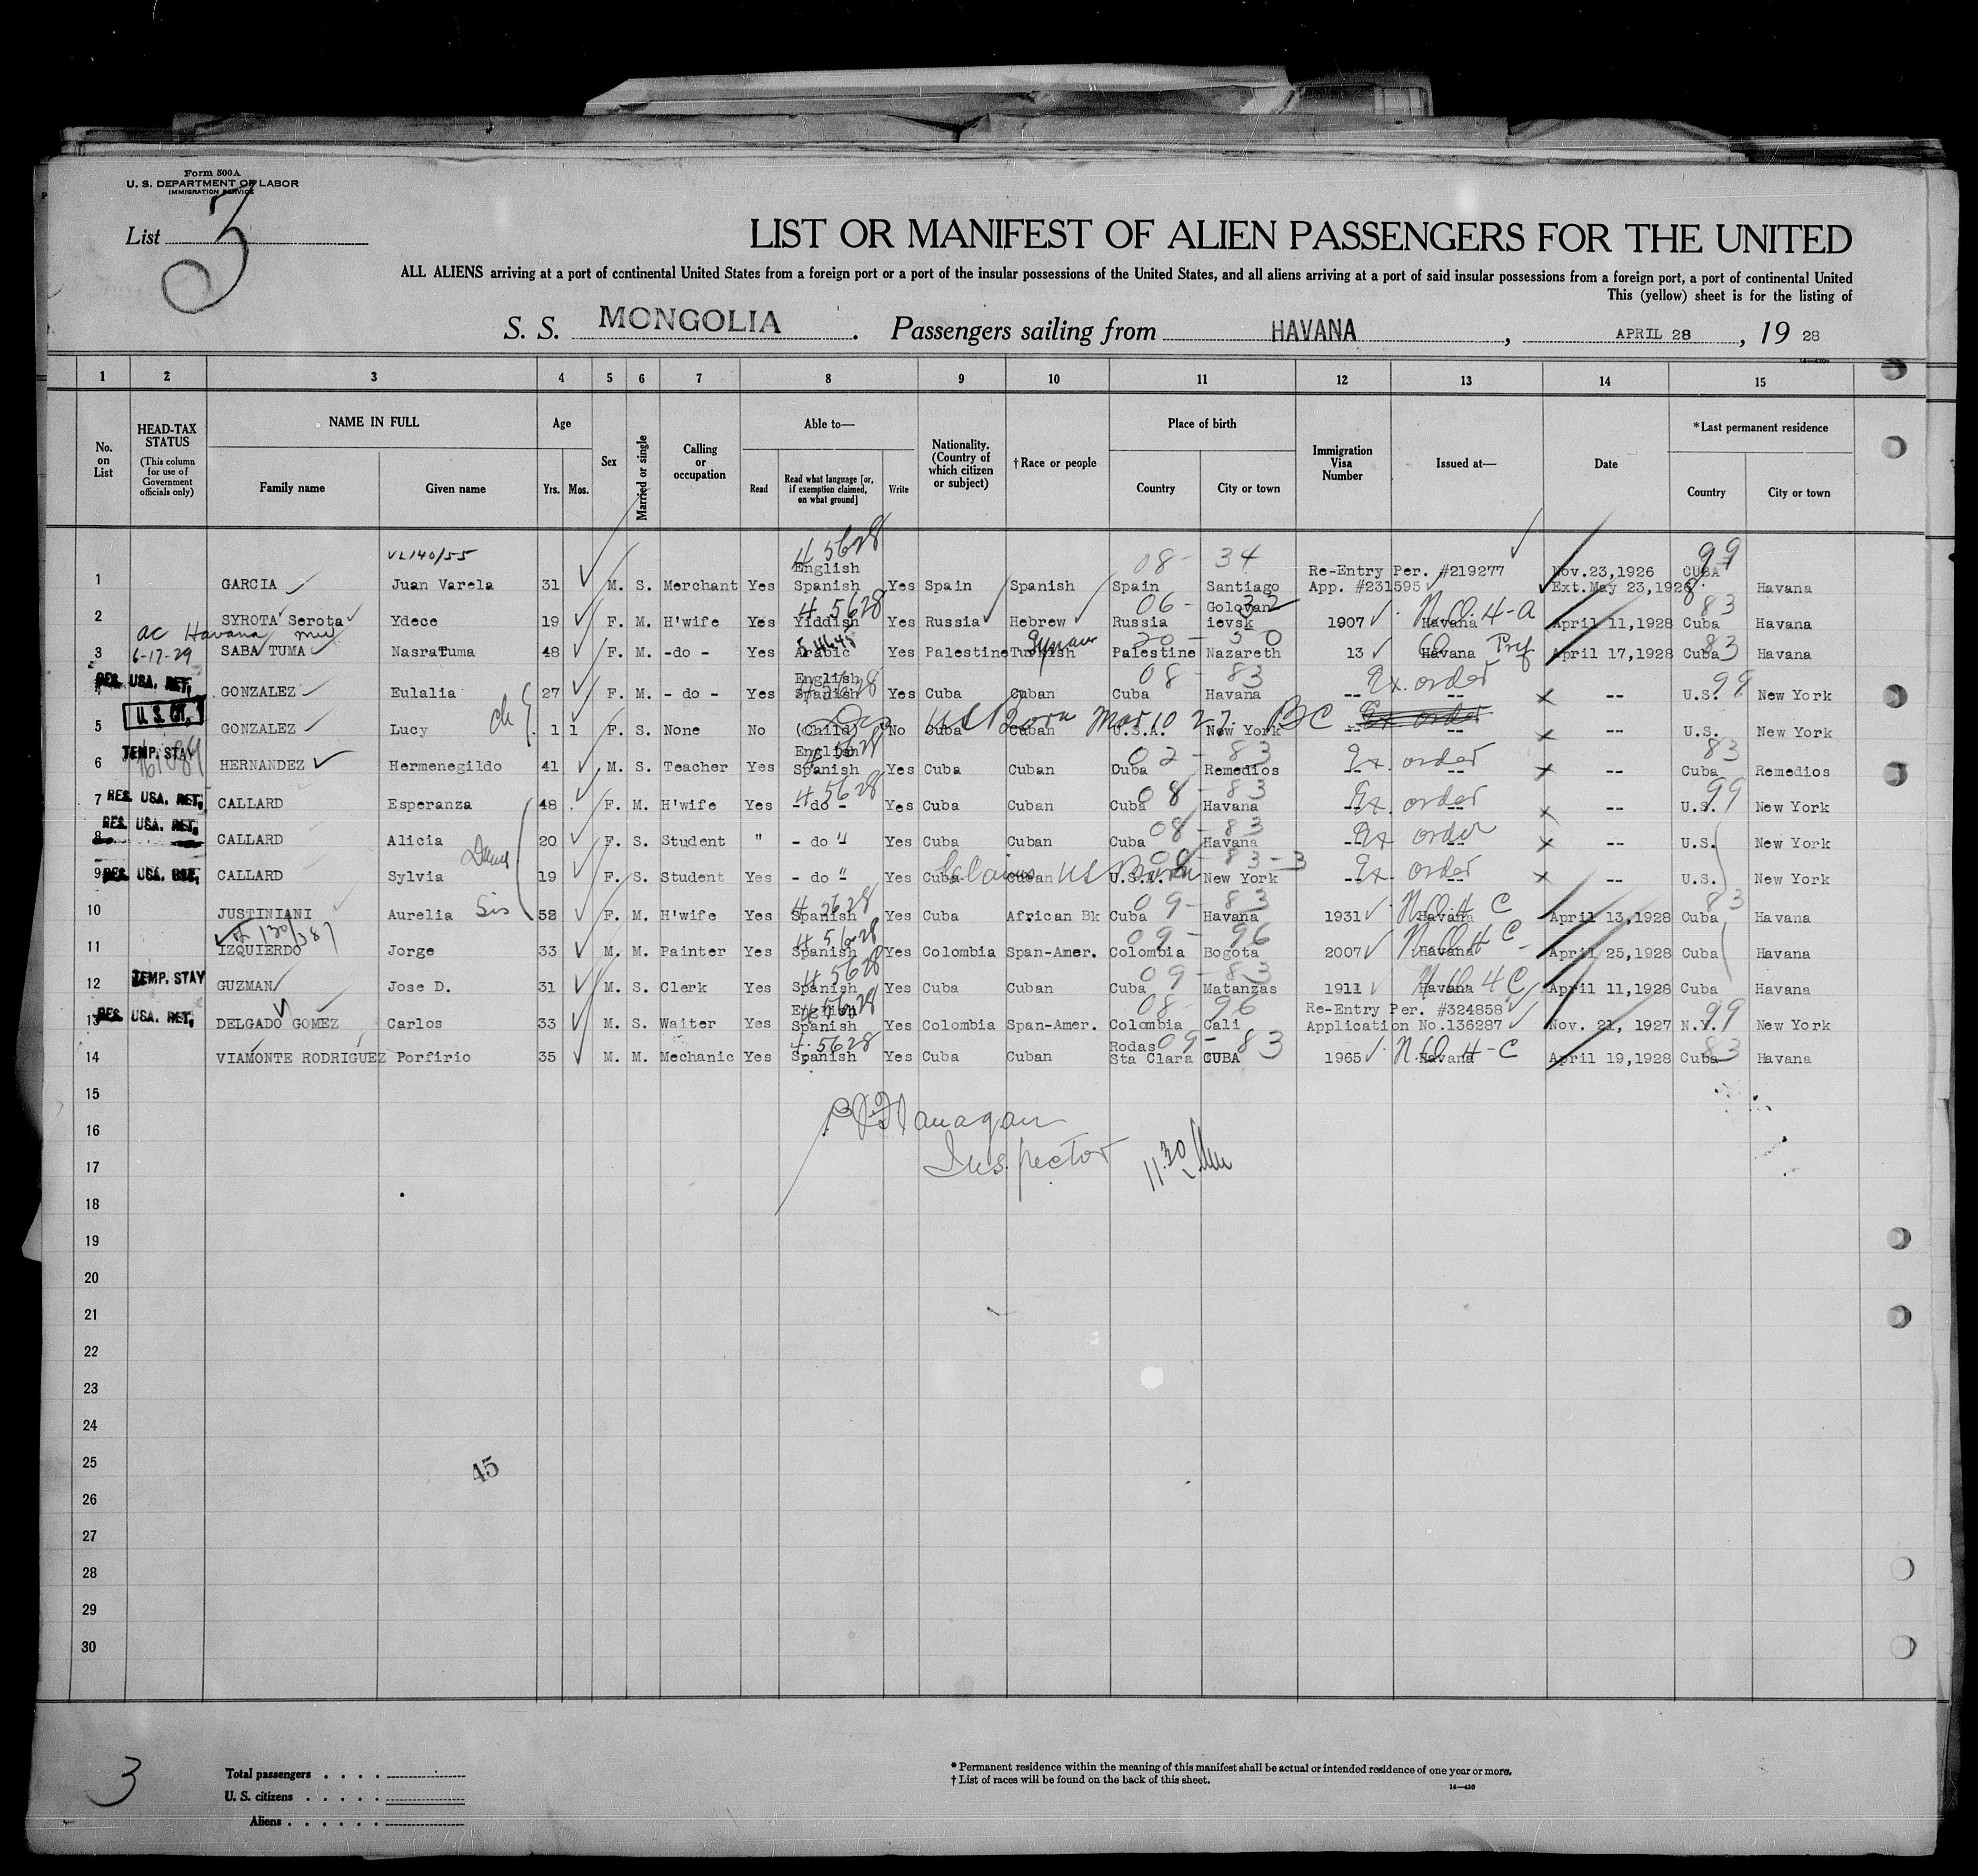 Form 500A
U. S. DEPARTMENT OF LABOR
IMMIGRATION SERVICE
List 3
LIST OR MANIFEST OF ALIEN PASSENGERS FOR THE UNITED
ALL ALIENS arriving at a port of continental United States from a foreign port or a port of the insular possessions of the United States, and all aliens arriving at a port of said insular possessions from a foreign port, a port of continental United
This (yellow) sheet is for the listing of
S. S. MONGOLIA. Passengers sailing from HAVANA, APRIL 28, 19 28
1 2 3 4 5 6 7 8 9 10 11 12 13 14 15
No. on List
HEAD-TAX STATUS (This column for use of Government officials only)
NAME IN FULL Family name Given name
Age Yrs. Mos.
Sex
Married or single
Calling or occupation
Able to— Read Read what language [or, if exemption claimed, on what ground] Write
Nationality. (Country of which citizen or subject)
†Race or people
Place of birth Country City or town
Immigration Visa Number
Issued at—
Date
*Last permanent residence Country City or town
VL140/55 4 5628 08- 34 99
English Re-Entry Per. #219277 Nov.23,1926 CUBA
1 GARCIA Juan Varela 31 M. S. Merchant Yes Spanish Yes Spain Spanish Spain Santiago App. #231595 Ext.May 23,1928 Havana
4 5628 06- 32 Golovan N.Q. 4-A 83
2 SYROTA Serota Ydece 19 F. M. H'wife Yes Yiddish Yes Russia Hebrew Russia ievsk 1907 Havana April 11,1928 Cuba Havana
ac Havana Syrian 20-50 Pref 83
3 6-17-29 SABA TUMA Nasra Tuma 48 F. M. -do- Yes Arabic Yes Palestine Turkish Palestine Nazareth 13 Havana April 17,1928 Cuba Havana
RES. USA. RET. English 4 5628 08-83 Ex. order 99
4 GONZALEZ Eulalia 27 F. M. - do - Yes Spanish Yes Cuba Cuban Cuba Havana -- -- -- U.S. New York
U. S. CIT. ch US Born Mar 10 27. BC Ex order
5 GONZALEZ Lucy 1 1 F. S. None No (Child) No Cuba Cuban U.S.A. New York -- -- -- U.S. New York
TEMP. STAY English 5628 02-83 Ex. order 83
6 HERNANDEZ Hermenegildo 41 M. S. Teacher Yes Spanish Yes Cuba Cuban Cuba Remedios -- -- -- Cuba Remedios
RES. USA. RET. 4 5628 08-83 Ex. order 99
7 CALLARD Esperanza 48 F. M. H'wife Yes - do - Yes Cuba Cuban Cuba Havana -- -- -- U.S. New York
RES. USA. RET. 08-83 Ex order
8 CALLARD Alicia 20 F. S. Student " - do " Yes Cuba Cuban Cuba Havana -- -- -- U.S. New York
RES. USA. RET. Claims US Born 08-83-3 Ex order
9 CALLARD Sylvia 19 F. S. Student Yes - do " Yes Cuba Cuban U.S.A. New York -- -- -- U.S. New York
Sis 4 5628 09-83 N.Q. 4 C 83
10 JUSTINIANI Aurelia 52 F. M. H'wife Yes Spanish Yes Cuba African Bk Cuba Havana 1931 Havana April 13,1928 Cuba Havana
130/387 4 5628 09-96 N.Q. 4 C
11 IZQUIERDO Jorge 33 M. M. Painter Yes Spanish Yes Colombia Span-Amer. Colombia Bogota 2007 Havana April 25,1928 Cuba Havana
TEMP. STAY 4 5628 09-83 N.Q. 4 C
12 GUZMAN Jose D. 31 M. S. Clerk Yes Spanish Yes Cuba Cuban Cuba Matanzas 1911 Havana April 11,1928 Cuba Havana
RES. USA. RET. English 4 5628 08-96 Re-Entry Per. #324858 99
13 DELGADO GOMEZ Carlos 33 M. S. Waiter Yes Spanish Yes Colombia Span-Amer. Colombia Cali Application No.136287 Nov. 21, 1927 N.Y. New York
4 5628 Rodas 09-83 N.Q. 4-C 83
14 VIAMONTE RODRIGUEZ Porfirio 35 M. M. Mechanic Yes Spanish Yes Cuba Cuban Sta Clara CUBA 1965 Havana April 19,1928 Cuba Havana
15
16 Flanagan
17 Inspector 11.30
18
19
20
21
22
23
24
25 45
26
27
28
29
30
3
Total passengers
U. S. citizens
Aliens
* Permanent residence within the meaning of this manifest shall be actual or intended residence of one year or more.
† List of races will be found on the back of this sheet.
14—430